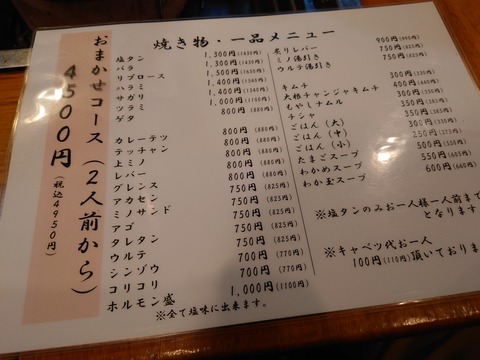 焼き物・一品メニュー
おまかせコース(2人前から)
4500円(税込4950円)
塩タン 1,300円(1430)
バラ 1,300円(1430)
リブロース 1,500円(1650)
ハラミ 1,400円(1540)
サガリ 1,400円(1540)
ツラミ 1,000円(1100)
ゲタ 800円(880)
カレーテツ 800円(880)
テッチャン 800円(880)
上ミノ 800円(880)
レバー 800円(880)
グレンス 800円(880)
アカセン 750円(825)
ミノサンド 750円(825)
アゴ 750円(825)
タレタン 750円(825)
ウルテ 750円(825)
シンゾウ 700円(770)
コリコリ 700円(770)
ホルモン盛 1,000円(1100)
※全て塩味に出来ます。
炙りレバー 900円(990)
ミノ湯引き 750円(825)
ウルテ湯引き 750円(825)
キムチ 300円(330)
大根チャンジャキムチ 400円(440)
もやしナムル 300円(330)
チシャ 350円(385)
ごはん(大) 350円(385)
ごはん(中) 300円(330)
ごはん(小) 250円(275)
たまごスープ 500円(550)
わかめスープ 550円(605)
わか玉スープ 600円(660)
※塩タンのみお一人様一人前まで
となります
※キャベツ代お一人
100円(110円)頂いておりま